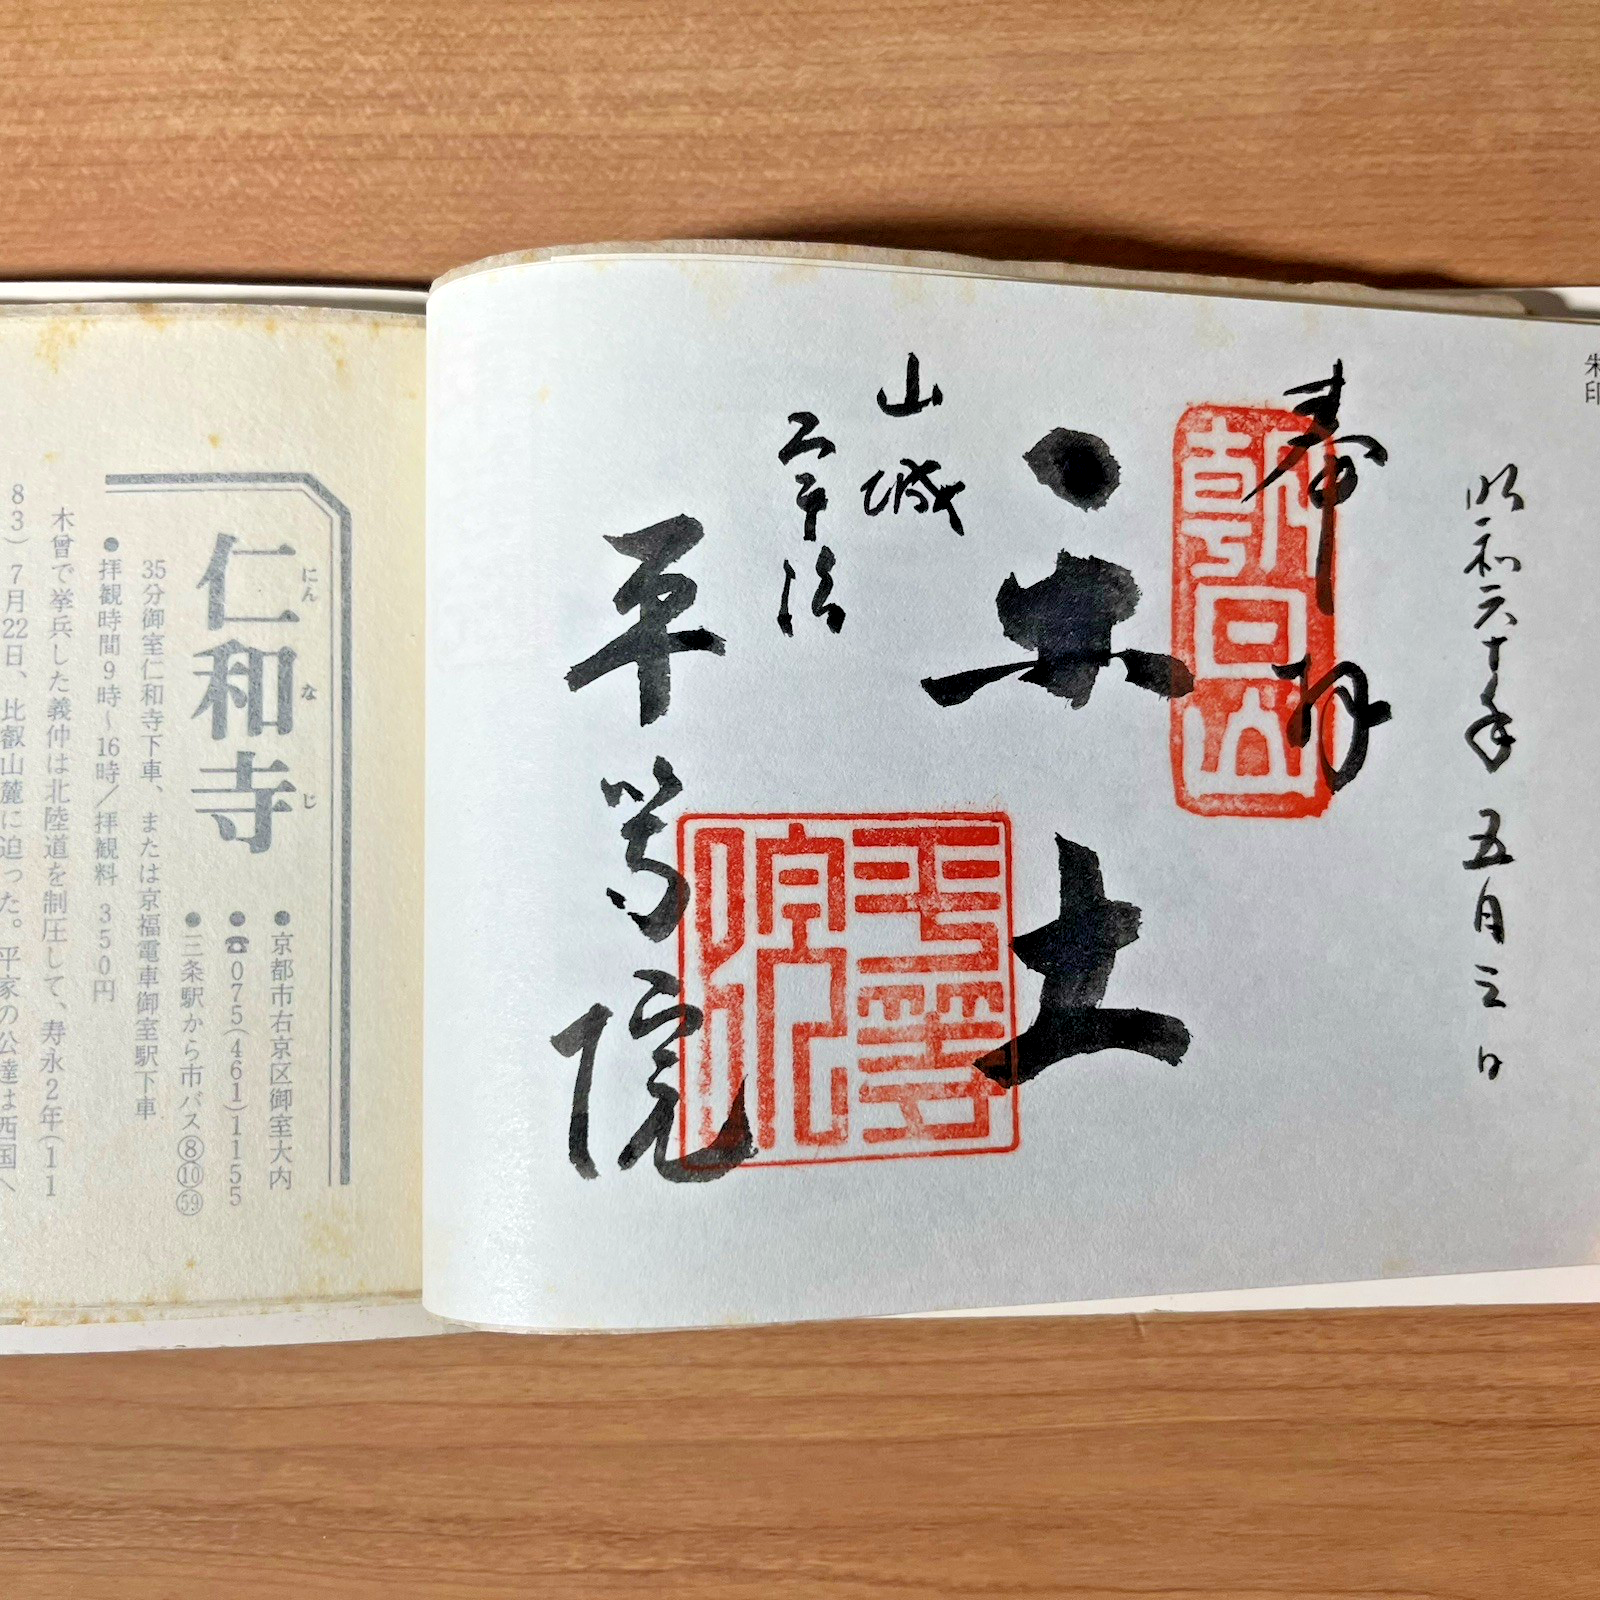 朱印
昭和六十年五月三日
奉拝
朝日山
楽土
山城
宇治
平等院
平等院
仁和寺
にんなじ
●京都市右京区御室大内
●☎075(461)1155
●三条駅から市バス⑧⑩㊾
35分御室仁和寺下車、または京福電車御室駅下車
●拝観時間9時〜16時/拝観料 350円
木曾で挙兵した義仲は北陸道を制圧して、寿永2年(11
83)7月22日、比叡山麓に迫った。平家の公達は西国へ